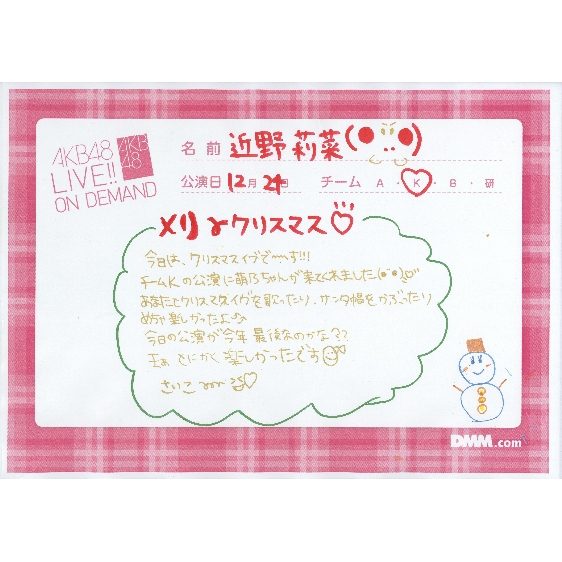 AKB48
LIVE!!
ON DEMAND
AKB
48
名前 近野莉菜
公演日 12月 24日 チーム A・K・B・研
メリ〜クリスマス♡
今日は、クリスマスイヴで〜〜す!!!
チームKの公演に萌乃ちゃんが来てくれました
あなたとクリスマスイヴを歌ったり、サンタ帽をかぶったり
めちゃ楽しかったよ♪
今日の公演が今年最後なのかな??
まぁ とにかく 楽しかったです
さいこ
DMM.com